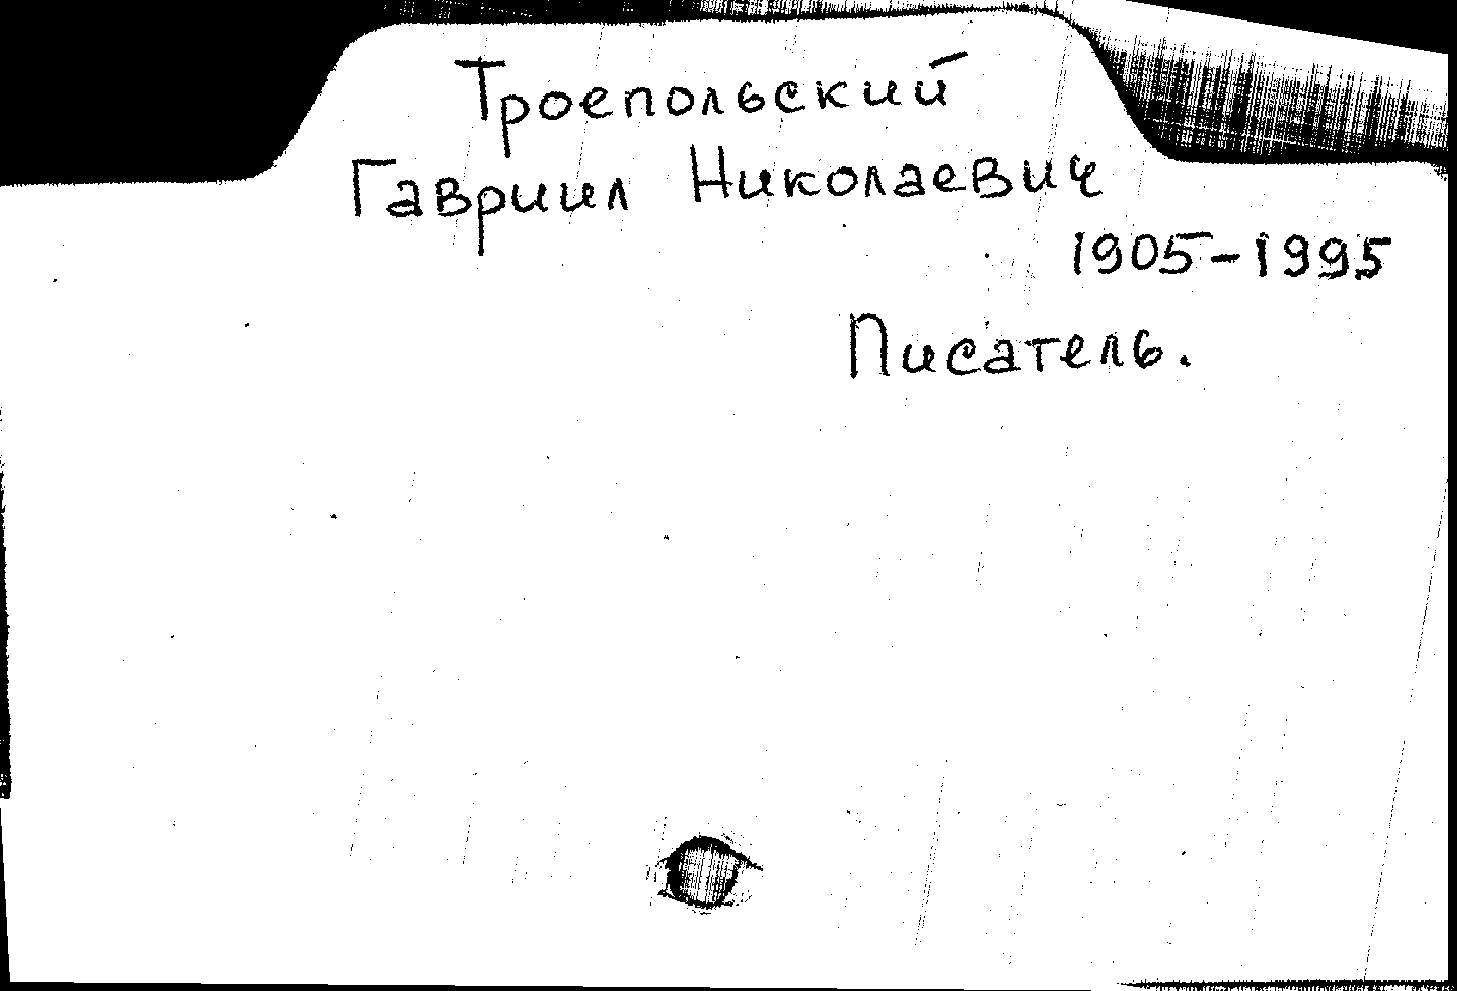 Троепольский
Гавриил Николаевич
1905-1995
Писатель.